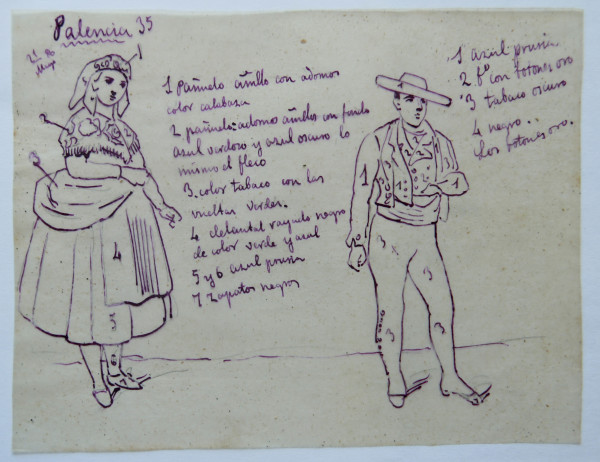 Palencia 35
21
1 Pañuelo amllo con adornos
color calabaza
2 pañuelo: adornos amllos con fondo
azul verdoso y azul oscuro lo
mismo el fleco
3 color tabaco con las
vueltas verdes.
4 delantal rayado negro
de color verde y azul
5 y 6 azul prusia
7 zapatos negros
1 azul prusia
2 fº con botones oro
3 tabaco oscuro
4 negro.
Los botones oro.
1
4
5
6
1
1
2
1
3
3
3
3